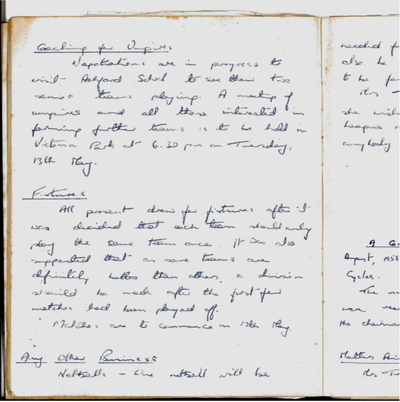 Coaching for Umpires
Negotiations are in progress to
visit Ashford School to see their two
senior teams playing. A meeting of
umpires and all those interested in
forming further teams is to be held in
Victoria Park at 6.30 pm on Tuesday,
13th May.
Fixtures
All present drew for fixtures after it
was decided that each team should only
play the same team once. It was also
suggested that as some teams are
definitely better than others, a division
should be made after the first few
matches had been played off.
Matches are to commence on 13th May.
Any Other Business
Netballs – One netball will be
also be
to be
she
August, 195
Cycles.
The
were
the chairman